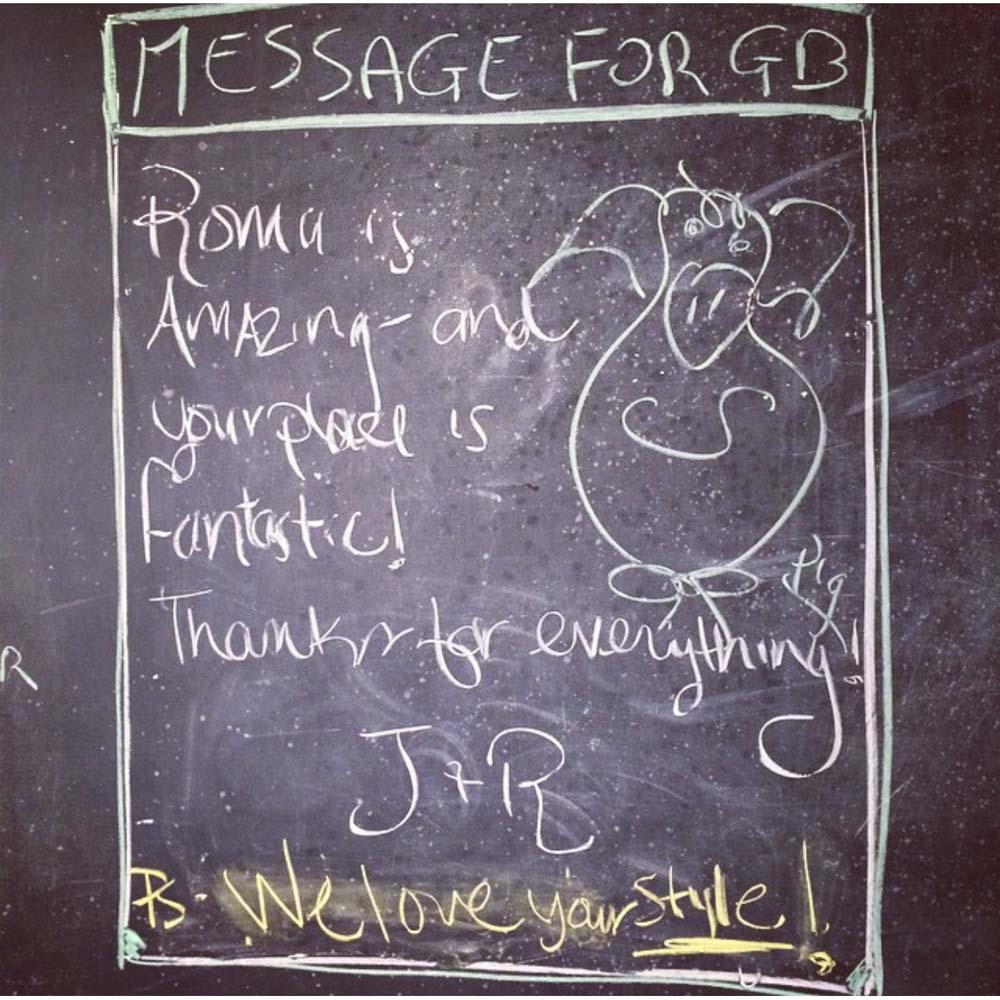 MESSAGE FOR GB
Roma is
Amazing - and
your place is
fantastic!
Thanks for everything!
J + R
PS - We love your style!
R